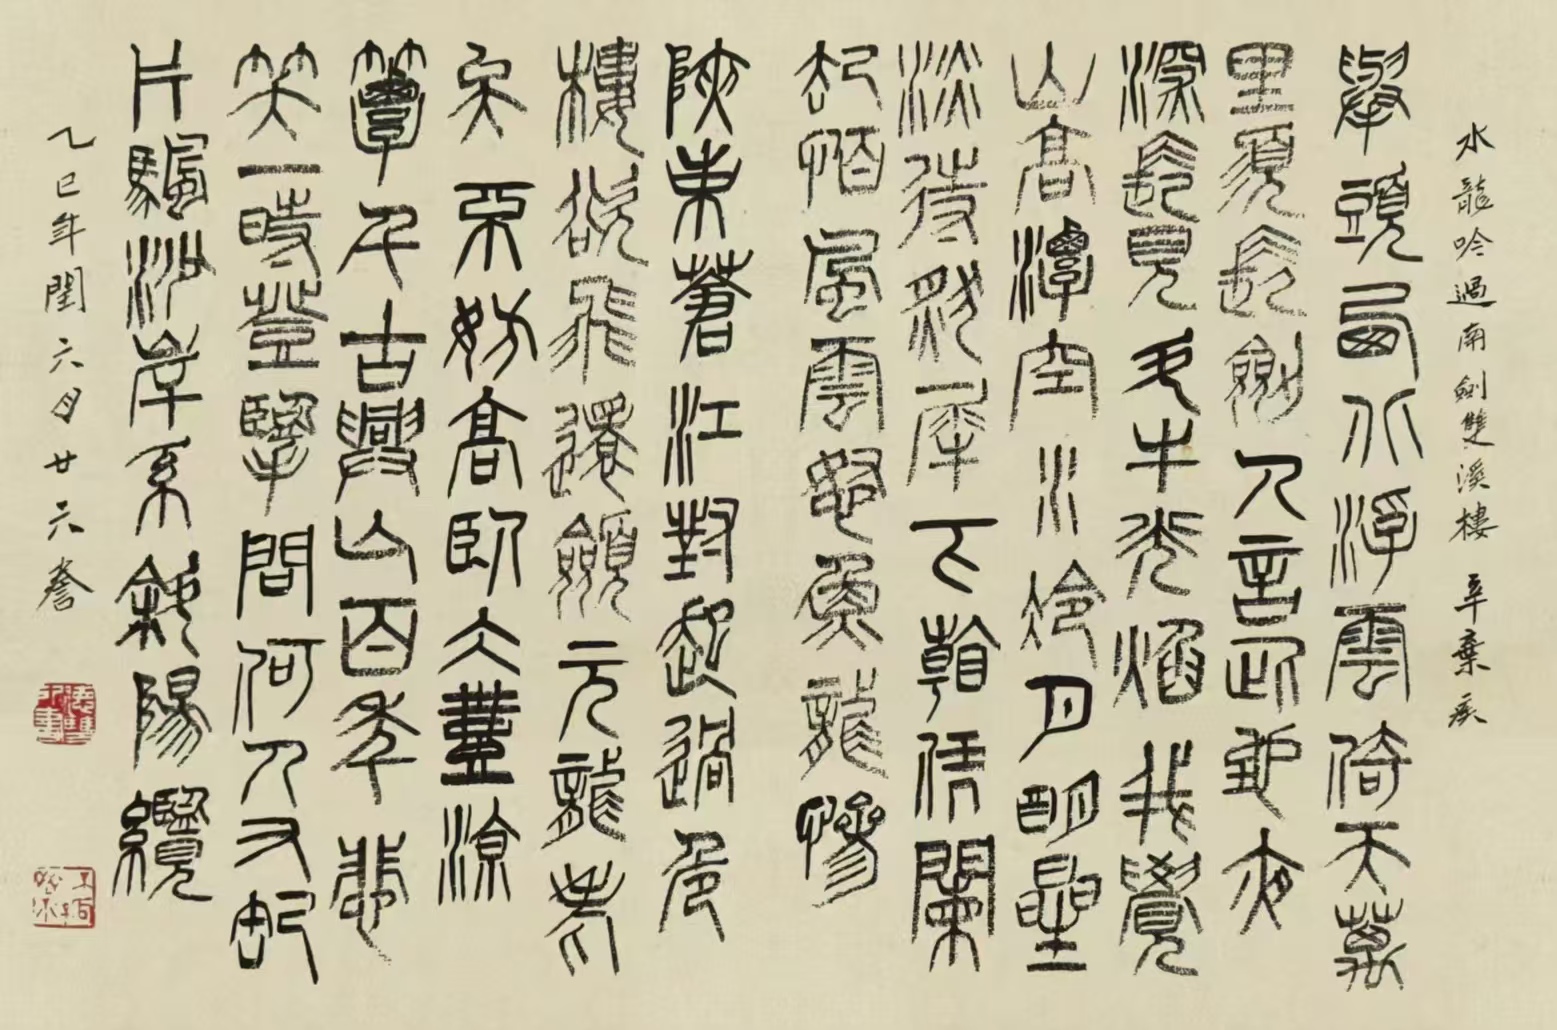 水龍吟過南劍雙溪樓 辛棄疾
舉頭西北浮雲倚天萬
里須長劍人言此地夜
深長見斗牛光焰我覺
山高潭空水冷月明星
淡待燃犀下看凭闌
卻怕風雲怒魚龍慘
峽束蒼江對起過危
樓欲飛還斂元龍老
矣不妨高臥冰壺涼
簟千古興亡百年悲
笑一時登覽問何人又卸
片帆沙岸系斜陽纜
乙巳年閏六月廿六